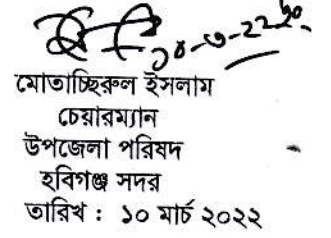 মোতাচ্ছিরুল ইসলাম
চেয়ারম্যান
উপজেলা পরিষদ
হবিগঞ্জ সদর
তারিখ : ১০ মার্চ ২০২২